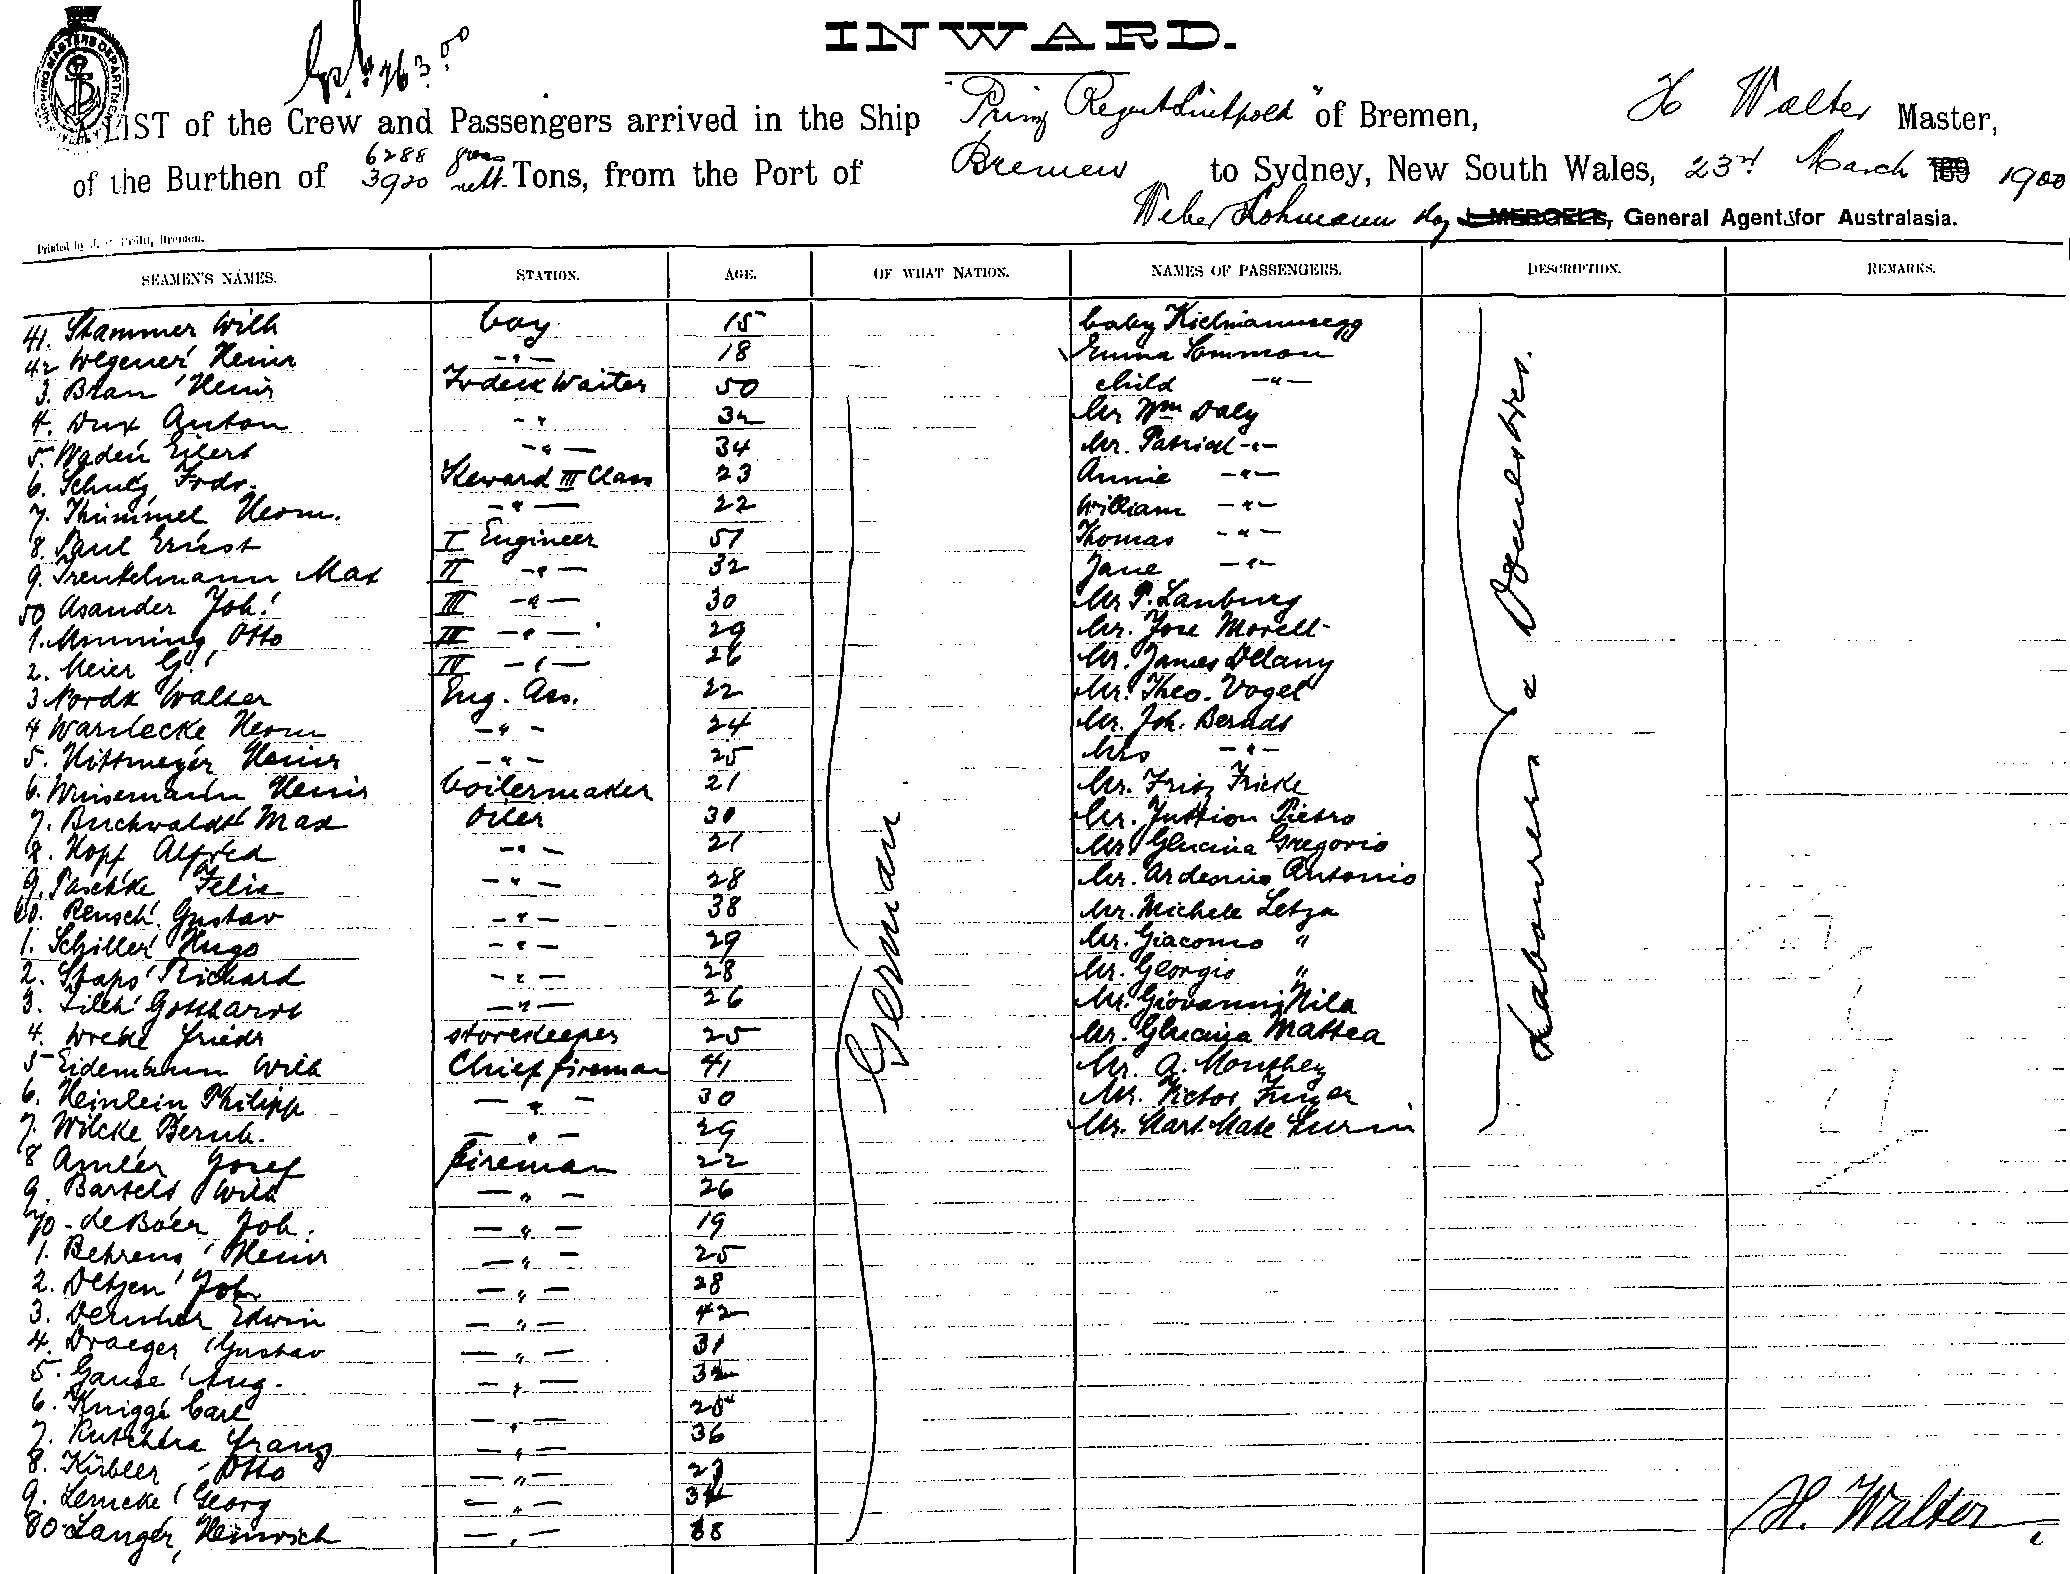 INWARD.
LIST of the Crew and Passengers arrived in the Ship "Prinz Regent Luitpold" of Bremen, H Walter Master,
of the Burthen of 6288 gross 3920 nett. Tons, from the Port of Bremen to Sydney, New South Wales, 23rd March 189 1900
Weber Lohmann General Agents for Australasia.
SEAMEN'S NAMES. STATION. AGE. OF WHAT NATION. NAMES OF PASSENGERS. DESCRIPTION. REMARKS.
German
Labourers & Domestics.
41. Stammer Wilh boy 15 baby Kielmannsegg
42 Wegener Heinr -"- 18 Emma
3. Bran Heinr Waiter 50 child -"-
4. Dux Anton -"- 32 Mr Wm Daly
5. Waden Eilert -"- 34 Mr. Patrick -"-
6. Schulz Fredr. Steward III Class 23 Annie -"-
7. Thümmel Herm. -"- 22 William -"-
8. Paul Ernst I Engineer 51 Thomas -"-
9. Trentelmann Max II -"- 32 Jane -"-
50 Asander Joh. III -"- 30 Mr P. Lanburg
1. Otto III -"- 29 Mr. Jose Morell
2. Meier G. IV -"- 26 Mr. James Dllany
3 Nordt Walter Eng. Ass. 22 Mr. Theo. Vogel
4 Warnecke Herm -"- 24 Mr. Joh. Berndt
5. Hittmeyer Heinr -"- 25 Mrs -"-
6. Winsemann Heinr boilermaker 21 Mr. Fritz Fricke
7. Buchwaldt Max Oiler 30 Mr. Pietro
8. Hopf Alfred -"- 21 Mr Glucina Gregorio
9. Paschke Felix -"- 28 Mr. Antonio
60. Rensch Gustav -"- 38 Mr. Michele Letza
1. Schiller Hugo -"- 29 Mr. Giacomo "
2. Staps Richard -"- 28 Mr. Georgio "
3. Gotthardt -"- 26 Mr. Giovanni Nila
4. Wrede Friedr storekeeper 25 Mr. Glucina Mattea
5 Eidemann Wilh Chief fireman 41 Mr. A. Monthey
6. Heinlein Philipp -"- 30 Mr. Victor
7. Wilcke Bernh. -"- 29 Mr.
8 Amler Josef fireman 22
9. Bartels Wilh -"- 26
70 - de Boer Joh. -"- 19
1. Behrens Heinr -"- 25
2. Detjen Joh -"- 28
3. Edwin -"- 42
4. Draeger Gustav -"- 31
5. Ganse Aug. -"- 32
6. Knigge Carl -"-
7. Franz -"- 36
8. Kirbler Otto -"-
9. Lemcke Georg -"-
80. Langer, Heinrich -"-
H. Walter